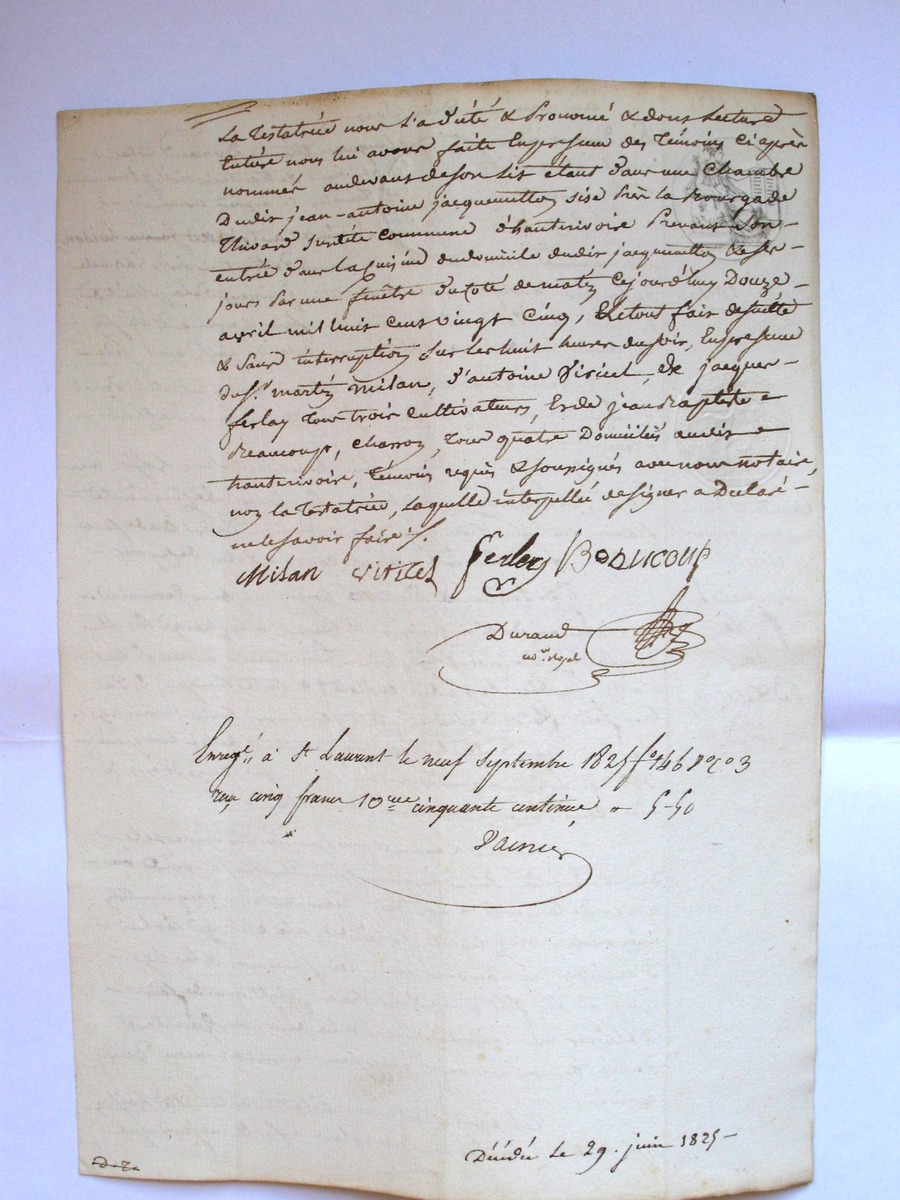 La testatrice nous l'a dicté & prononcé & dont lecture
entière nous lui avons faite en présence des témoins ci après
nommés au devant de son lit étant dans une chambre
dudit jean-antoine jacquemetton sise près la Bourgade
commune d'hauterivoire Prenant son
entrée dans la cuisine du domicile dudit jacquemetton & ses
jours par une fenêtre du coté de matin cejourd'huy Douze
avril mil huit cent vingt cinq, Et le tout fait de suitte
& sans interruption sur les huit heures du soir, En présence
de Sr. martin Milan, d'antoine Viricel, de jacques
ferlay tous trois cultivateurs, et de jean Baptiste
Beaucoup, charron, tous quatre Domiciliés audit
hauterivoire, témoins requis & soussignés avec nous notaire,
non la testatrice, laquelle interpellée de signer a Déclaré
ne le savoir faire ./.
Milan viricel ferley Beaucoup
Durand
nore. royal
Enregté. à St Laurent le neuf Septembre 1825 fo 146 Ro Co 3
reçu cinq francs 10eme cinquante centimes 5-50
Décédée le 29. juin 1825